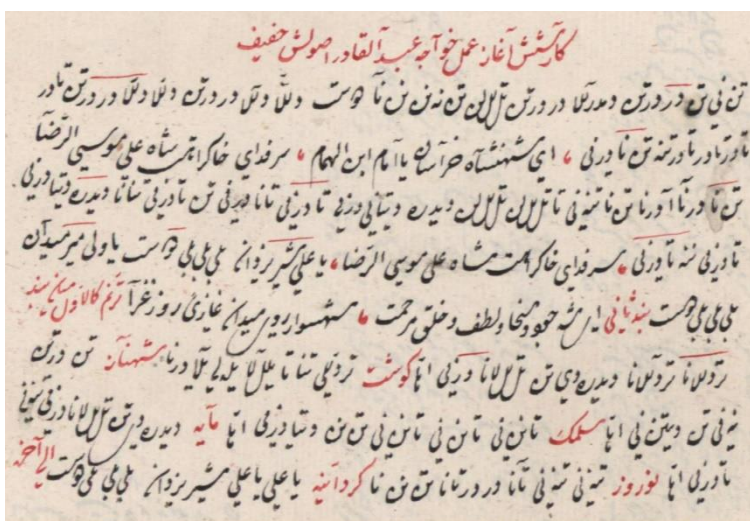 کار شش آغاز عمل خواجه عبد القادر اصولش خفیف
تن نی تن در درتن دمدرلا در درتن تللن تن نه نن تن نا دوست وللا وللا در درتن وللا وللا در درتن نادر
نادر نادر نادر تنه تن نادرنی ای شهنشاه خراسان یا امام ابن الهمام سر فدای خاک راهت شاه علی موسی الرضا
تن نا درنا آ درنا تن نا تنه نی تا تللن تللن دیدره دیتانی درنی تا درنی تانا درنی تن نادرنی تنانا دیدره دیتا درنی
نادرنی تنه نادرنی سر فدای خاک راهت شاه علی موسی الرضا یا علی شیر یزدان بلی بلی بلی دوست یا ولی میر میدان
بلی بلی بلی دوست بند ثانی ای شه جود و سخا و لطف و خلق مرحمت شهسوار روی میدان غازی روز غزا ترنم کالاول میان بند
تردللانا تردللانا دیدره دی تن تللانا درنی اها کوشت تردلی تنا تا یللا یلهلی یلا درنا شهناز تن درتن
نه نی تن دیتن نی اها سلمک تان نی تا تن نی تان نی تن تن دیتا درنی اها مایه دیدره دی تن تللانا درنی
نادرنی اها نوروز تنه نی تنه نی تانا در درتانا تن تن نا کردانیه یا علی یا علی شیر یزدان بلی بلی بلی دوست الی آخره